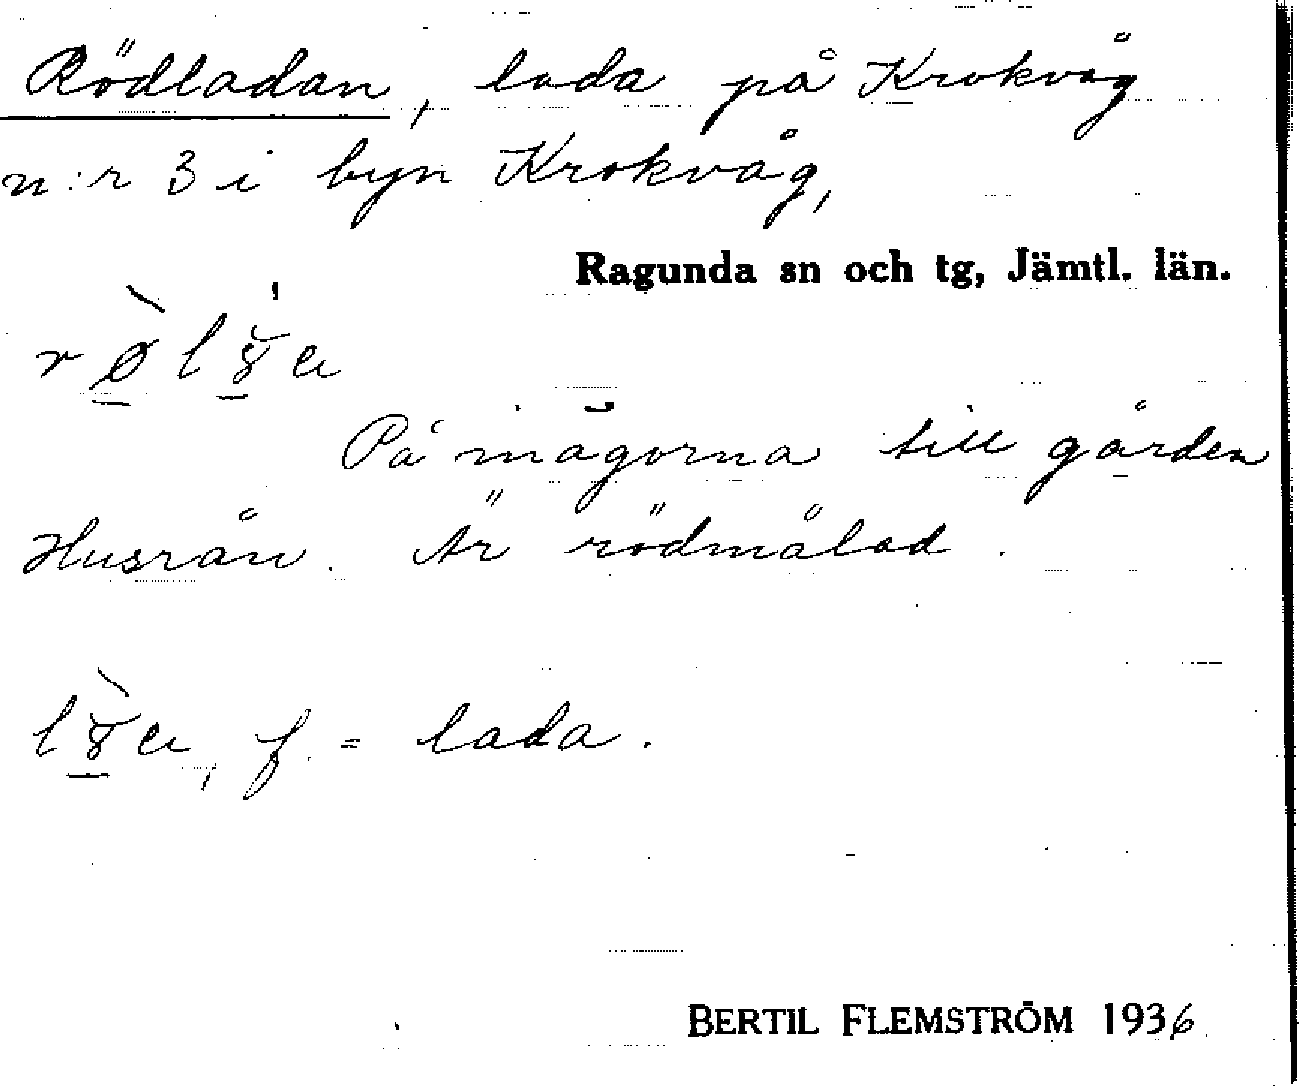 Rödladan, lada på Krokvåg
n:r 3 i byn Krokvåg,
Ragunda sn och tg, Jämtl. län.
På inägorna till gården
Husrån. Är rödmålad.
f. = lada.
BERTIL FLEMSTRÖM 1936